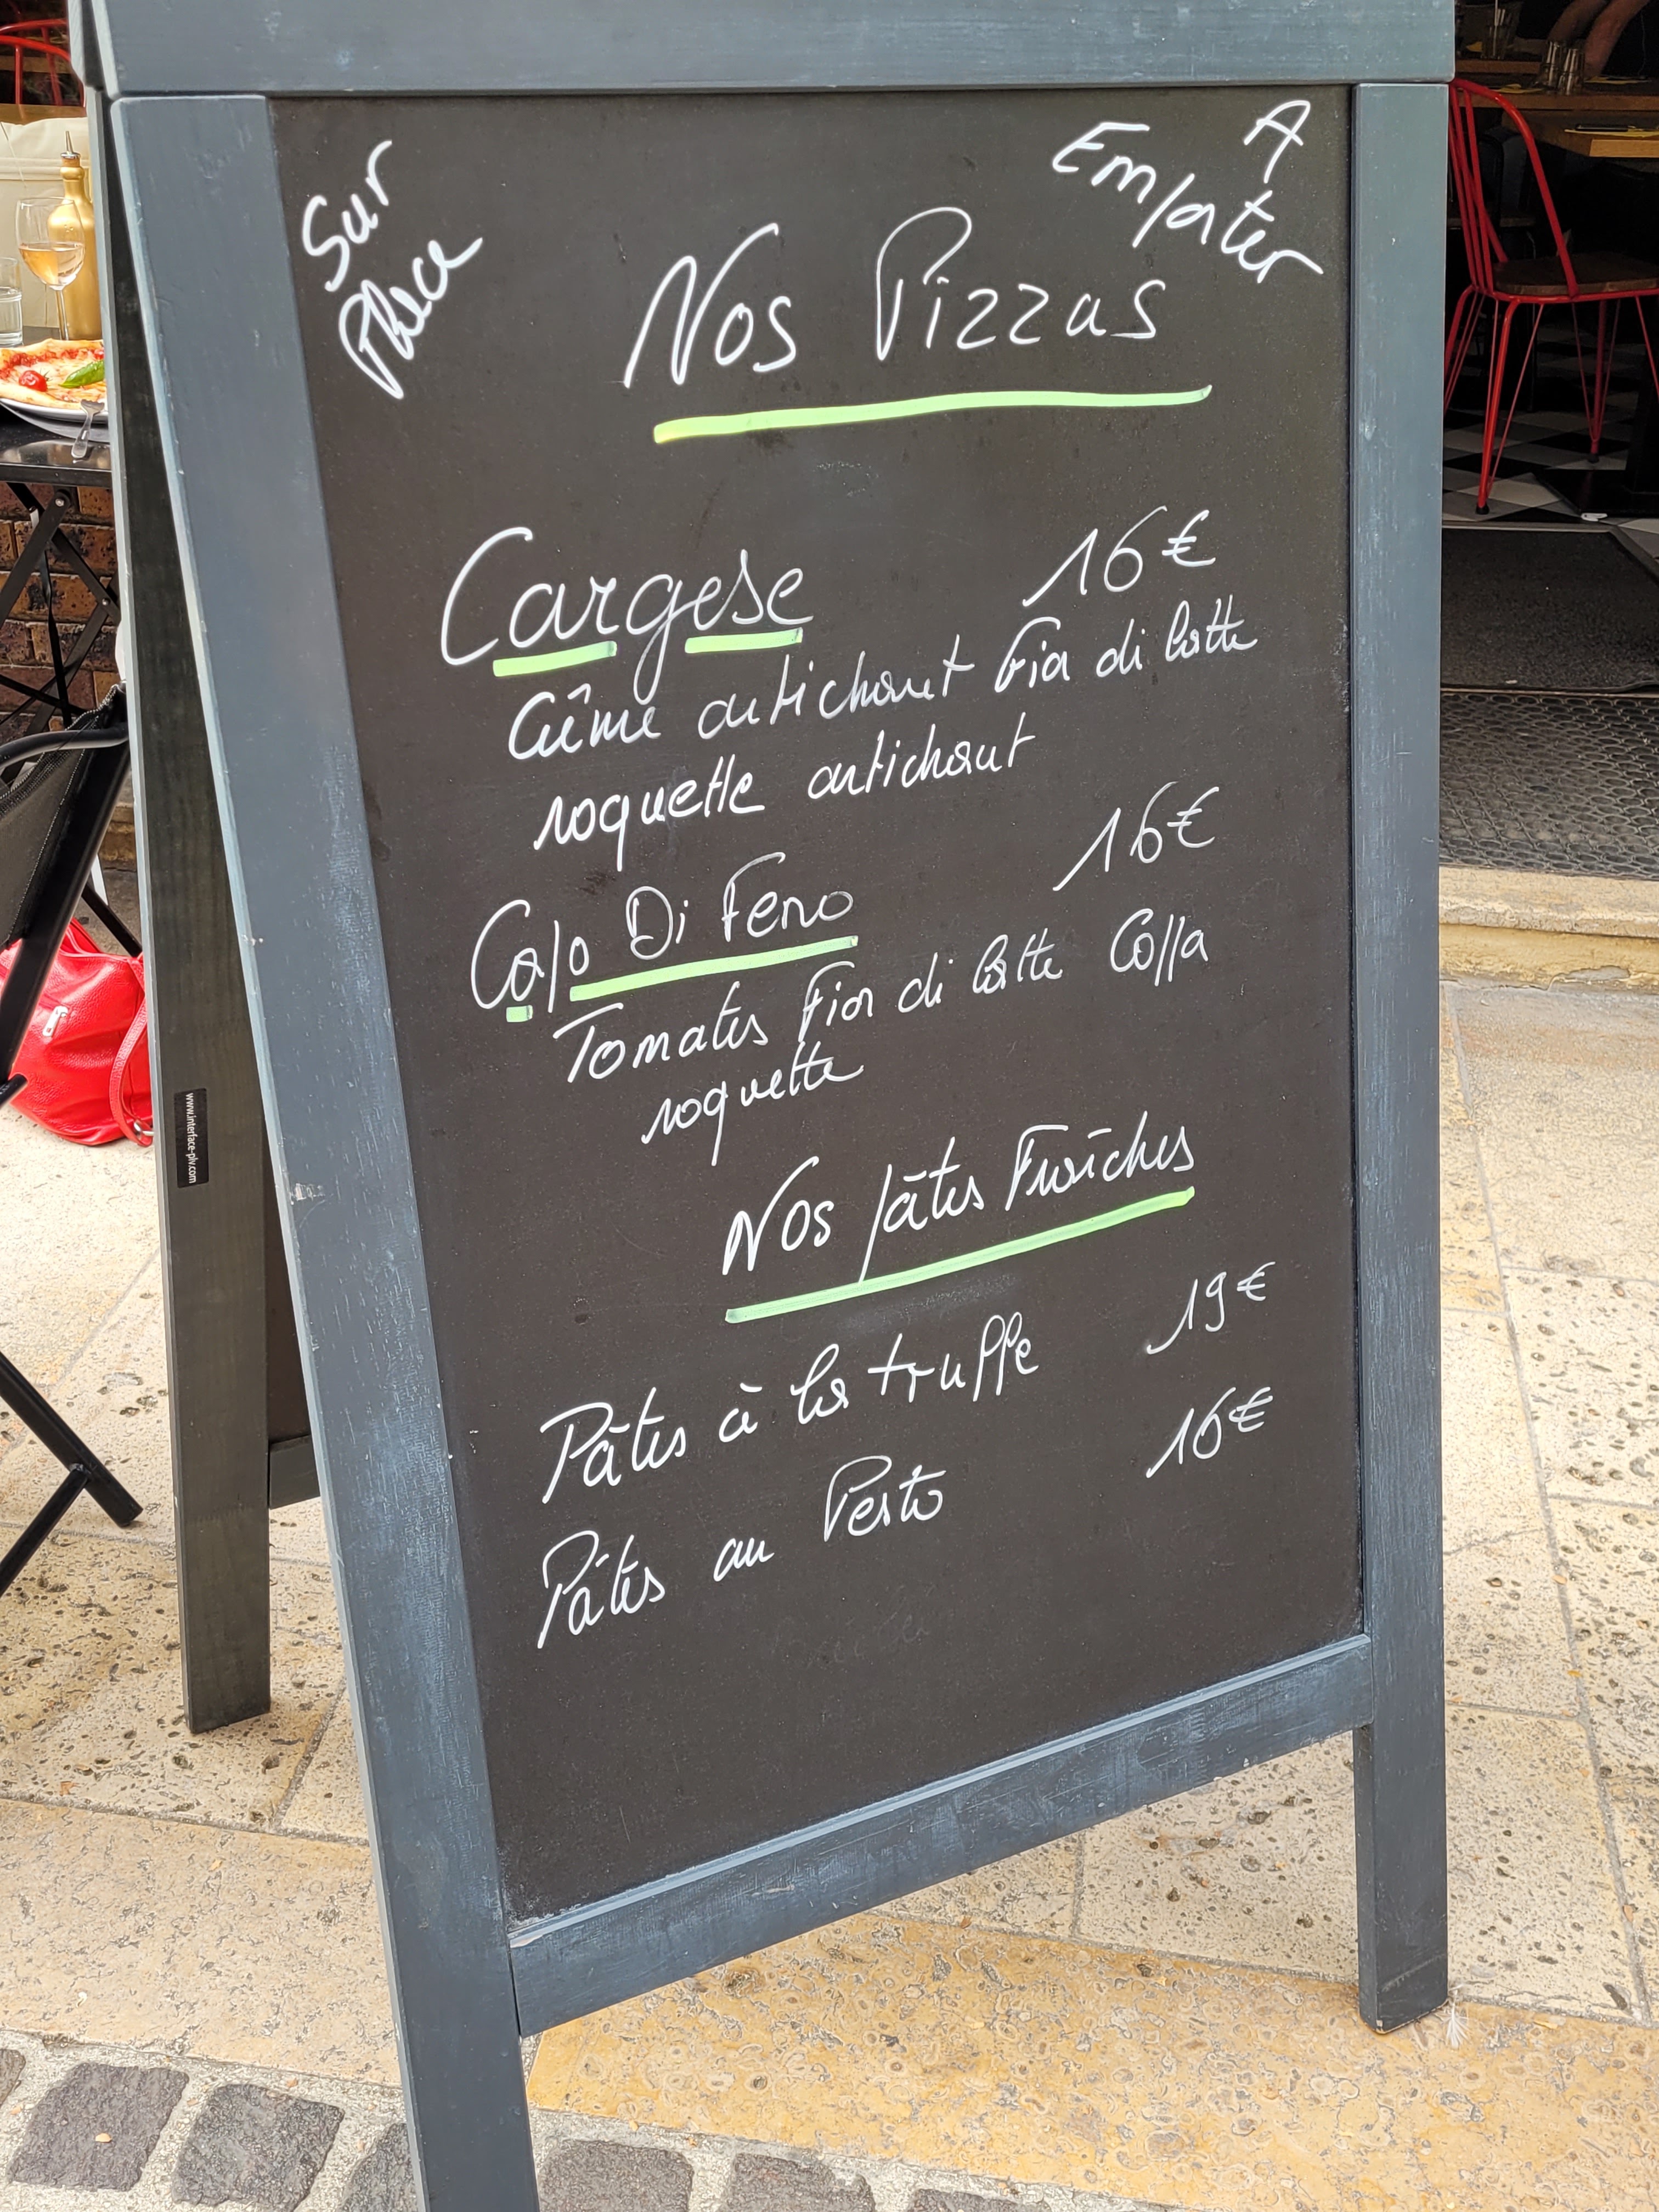 Sur
Place
A
Emporter
Nos Pizzas
Cargese 16€
Crème artichaut Fior di latte
roquette artichaut
Capo Di Feno 16€
Tomates Fior di latte Coppa
roquette
Nos pâtes Fraîches
Pâtes à la truffe 19€
Pâtes au Pesto 16€
www.interface-plv.com